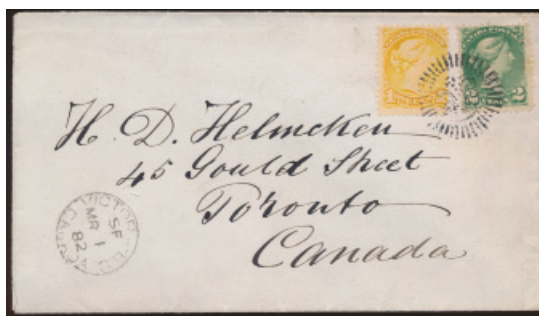 H. D. Helmcken
45 Gould Street
Toronto
Canada
2
VICTORIA
SF
MR 1
82